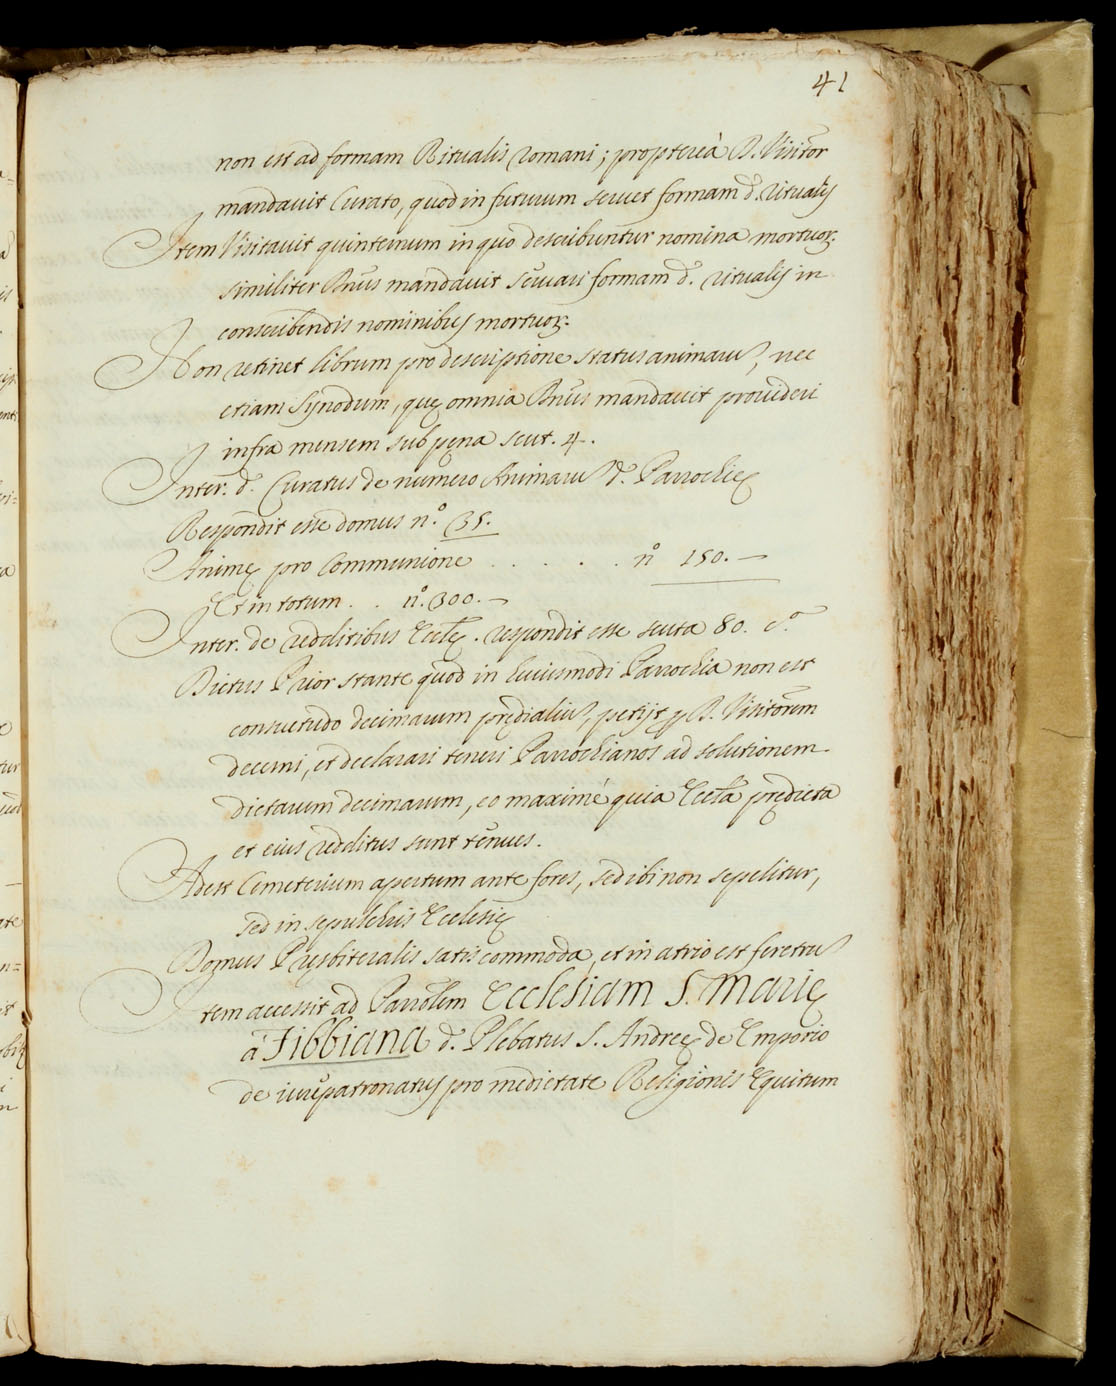 41
non est ad formam Ritualis romani; proptereà D. Visitor
mandavit Curato, quod in futurum servet formam d. ritualis
Item Visitavit quinternum in quo describuntur nomina mortuor.
similiter Dnus mandavit servari formam d. ritualis in
conscribendis nominibus mortuor.
Non retinet librum pro descriptione status animarũ, nec
etiam Synodum, quę omnia Dnus mandavit provideri
infra mensem sub pęna scut. 4.
Inter. d. Curatus de numero Animarũ d. Parrochię
Respondit esse domus n.º 35.
Animę pro Communione . . . . . nº 150.—
Et in totum . . n.º 300.—
Inter. de redditibus Ecclę. respondit esse scuta 80. cª
Dictus Prior stante quod in huiusmodi Parrochia non est
consuetudo decimarum prędialiũ, petijt p D. Visitorem
decerni, et declarari teneri Parrochianos ad solutionem
dictarum decimarum, eo maximè quia Eccła prędicta
et eius redditus sunt tenues.
Adest Cemeterium apertum ante fores, sed ibi non sepelitur,
sed in sepulchris Ecclesię
Domus Presbiteralis satis commoda, et in atrio est feretrũ
Item accessit ad Parrolem Ecclesiam S. Marię
à Fibbiana d. Plebatus S. Andreę de Emporio
de iurepatronatus pro medietate Religionis Equitum